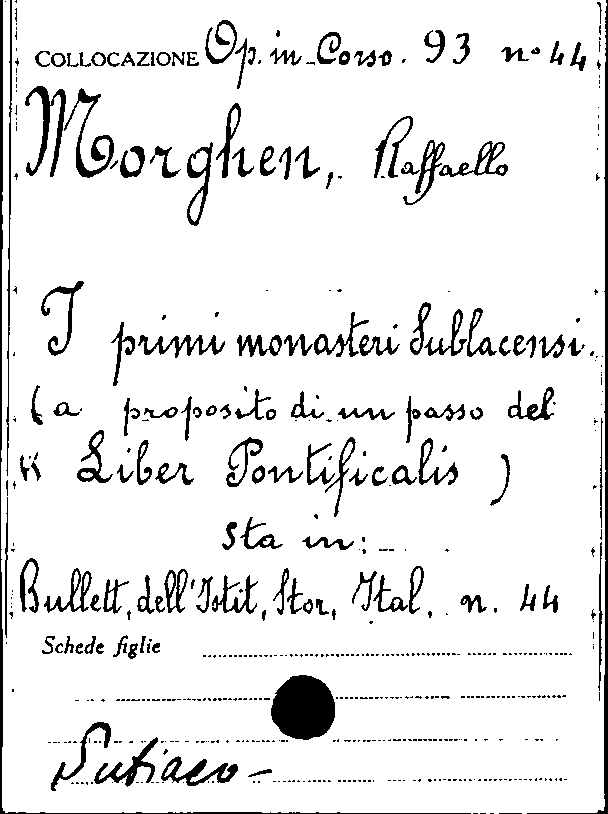 COLLOCAZIONE Op. in Corso. 93 n° 44
Morghen, Raffaello
I primi monasteri Sublacensi.
(a proposito di un passo del
« Liber Pontificalis )
sta in:
Bullett, dell'Istit, Stor, Ital, n. 44
Schede figlie
Subiaco -